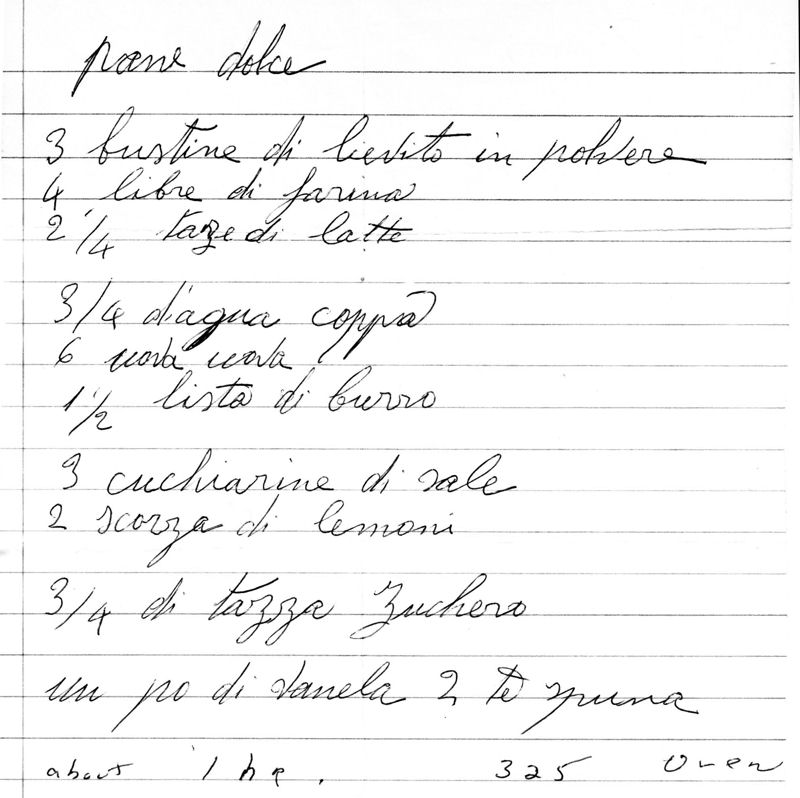 pane dolce
3 bustine di lievito in polvere
4 libre di farina
2 1/4 taze di latte
3/4 d'agua coppa
6 uova uova
1 1/2 lista di burro
3 cuchiarine di sale
2 scorza di lemoni
3/4 di tazza Zuchero
un po di vanela 2 te spuna
about 1 hr. 325 Oven